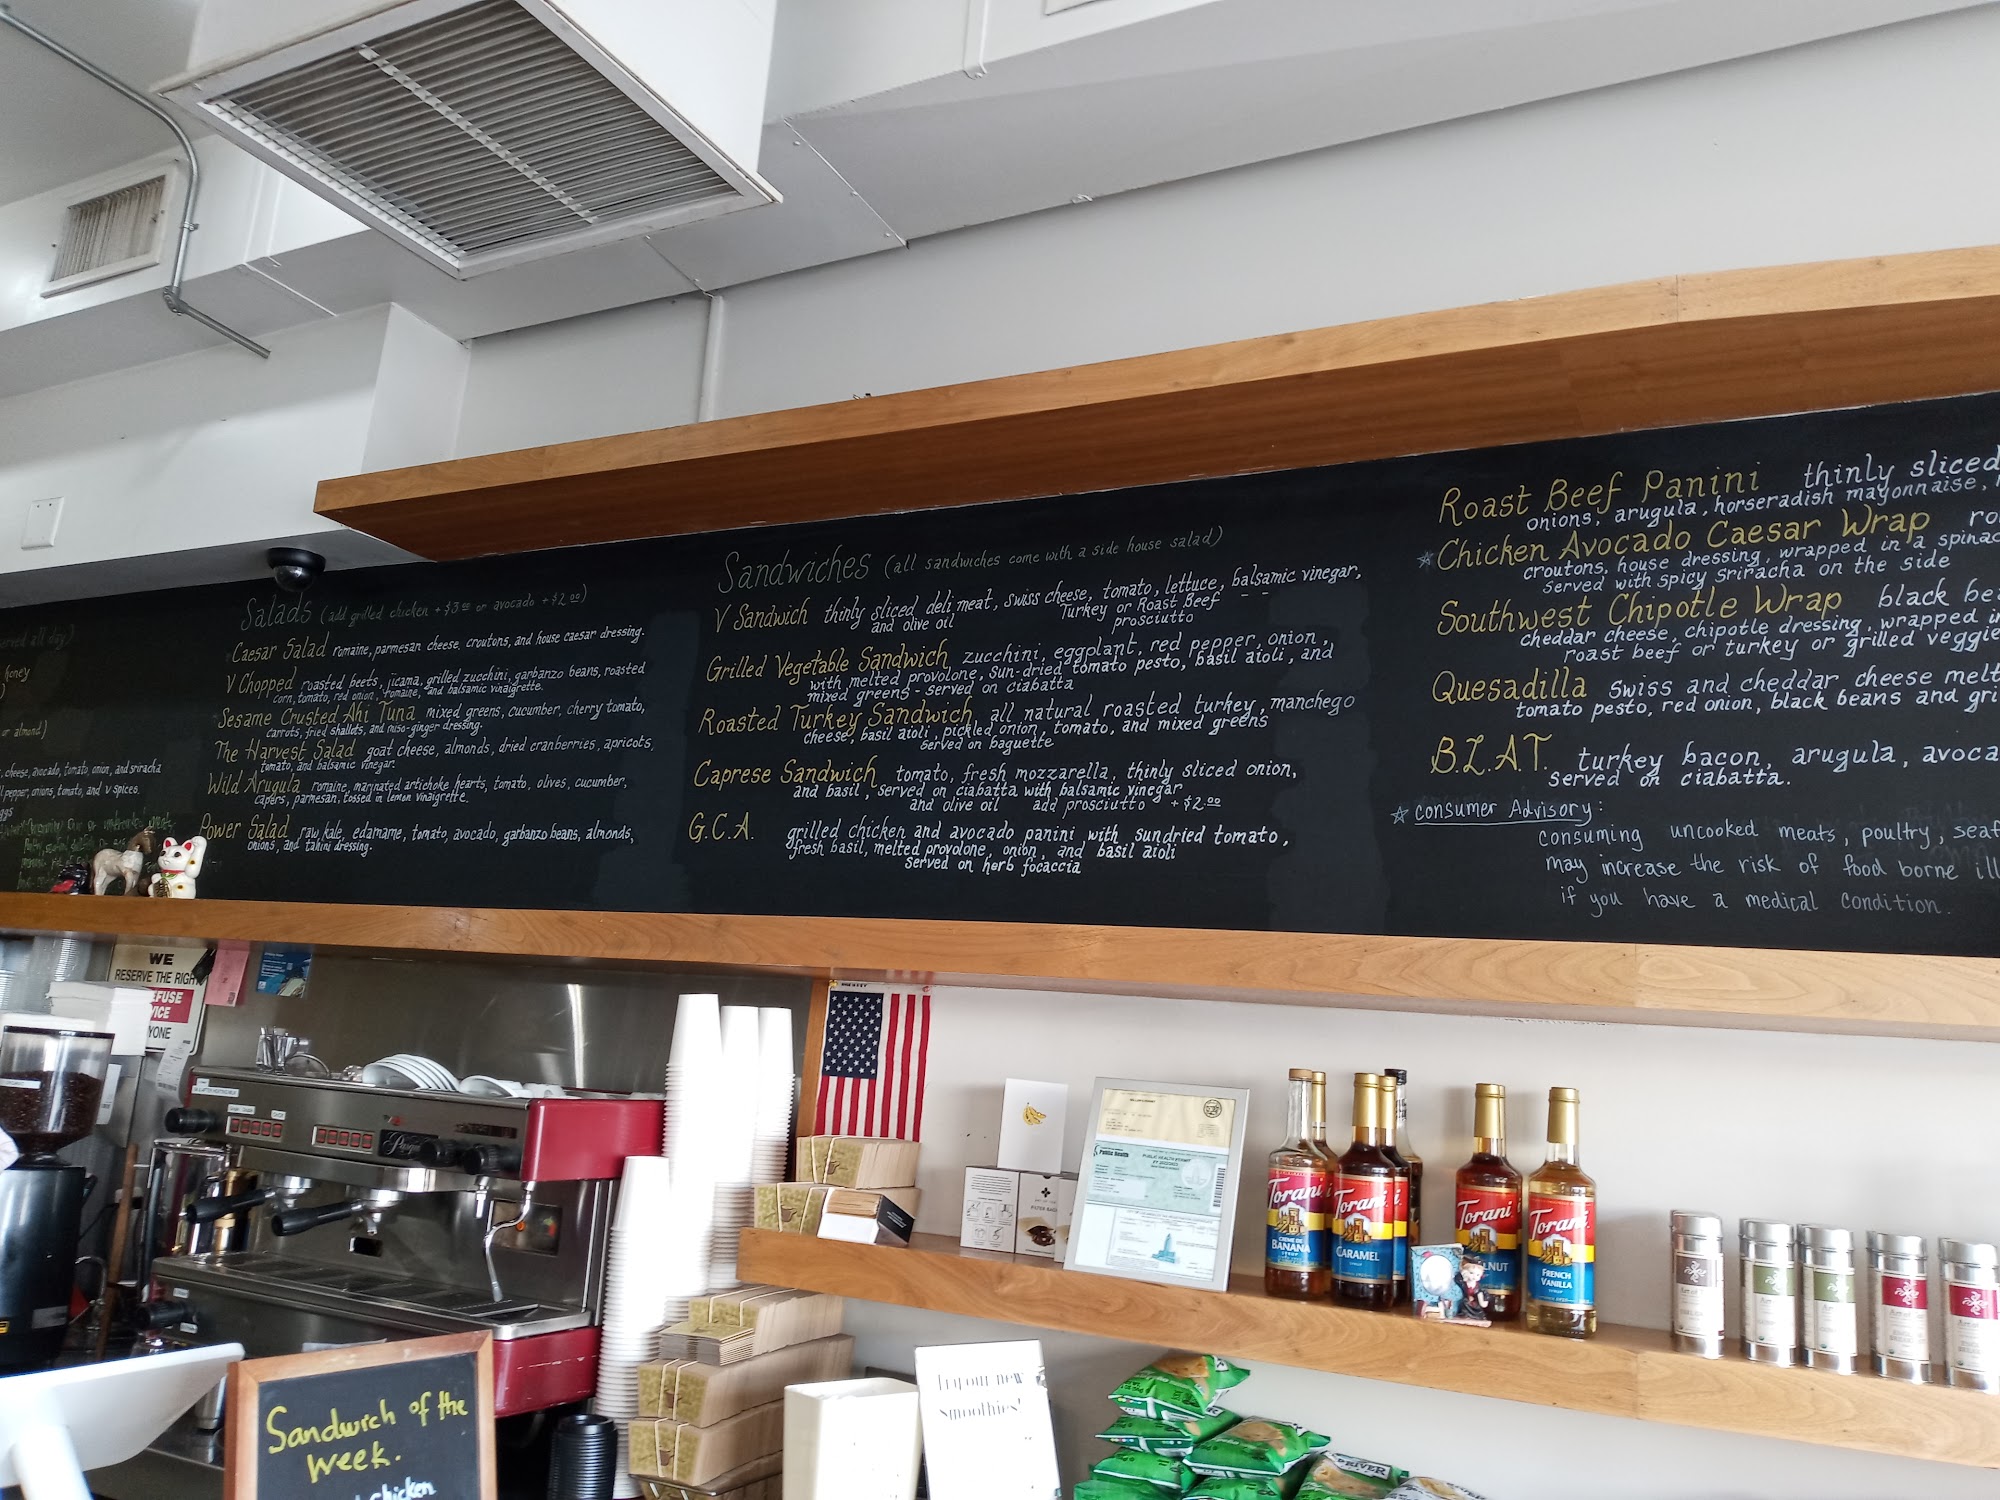 served all day)
honey
or almond)
cheese, avocado, tomato, onion, and sriracha
pepper, onions, tomato, and v spices.
Salads (add grilled chicken + $3.00 or avocado + $2.00)
Caesar Salad romaine, parmesan cheese, croutons, and house caesar dressing.
V Chopped roasted beets, jicama, grilled zucchini, garbanzo beans, roasted
corn, tomato, red onion, romaine, and balsamic vinaigrette.
Sesame Crusted Ahi Tuna mixed greens, cucumber, cherry tomato,
carrots, fried shallots, and miso-ginger dressing.
The Harvest Salad goat cheese, almonds, dried cranberries, apricots,
tomato, and balsamic vinegar.
Wild Arugula romaine, marinated artichoke hearts, tomato, olives, cucumber,
capers, parmesan, tossed in lemon vinaigrette.
Power Salad raw kale, edamame, tomato, avocado, garbanzo beans, almonds,
onions, and tahini dressing.
Sandwiches (all sandwiches come with a side house salad)
V Sandwich thinly sliced deli meat, swiss cheese, tomato, lettuce, balsamic vinegar,
and olive oil Turkey or Roast Beef
prosciutto
Grilled Vegetable Sandwich zucchini, eggplant, red pepper, onion,
with melted provolone, sun-dried tomato pesto, basil aioli, and
mixed greens - served on ciabatta
Roasted Turkey Sandwich all natural roasted turkey, manchego
cheese, basil aioli, pickled onion, tomato, and mixed greens
served on baguette
Caprese Sandwich tomato, fresh mozzarella, thinly sliced onion,
and basil, served on ciabatta with balsamic vinegar
and olive oil add prosciutto + $2.00
G.C.A. grilled chicken and avocado panini with sundried tomato,
fresh basil, melted provolone, onion, and basil aioli
served on herb focaccia
Roast Beef Panini thinly sliced
onions, arugula, horseradish mayonnaise,
☆ Chicken Avocado Caesar Wrap
croutons, house dressing, wrapped in a
served with spicy sriracha on the side
Southwest Chipotle Wrap black
cheddar cheese, chipotle dressing, wrapped
roast beef or turkey or grilled veggie
Quesadilla swiss and cheddar cheese
tomato pesto, red onion, black beans and
B.L.A.T. turkey bacon, arugula,
served on ciabatta.
☆ consumer Advisory:
consuming uncooked meats, poultry,
may increase the risk of food borne
if you have a medical condition.
WE
RESERVE THE RIGHT
Public Health
PUBLIC HEALTH PERMIT
Torani
CREME DE
BANANA
Torani
CARAMEL
Torani
Torani
FRENCH
VANILLA
smoothies!
Sandwich of the
week.
chicken